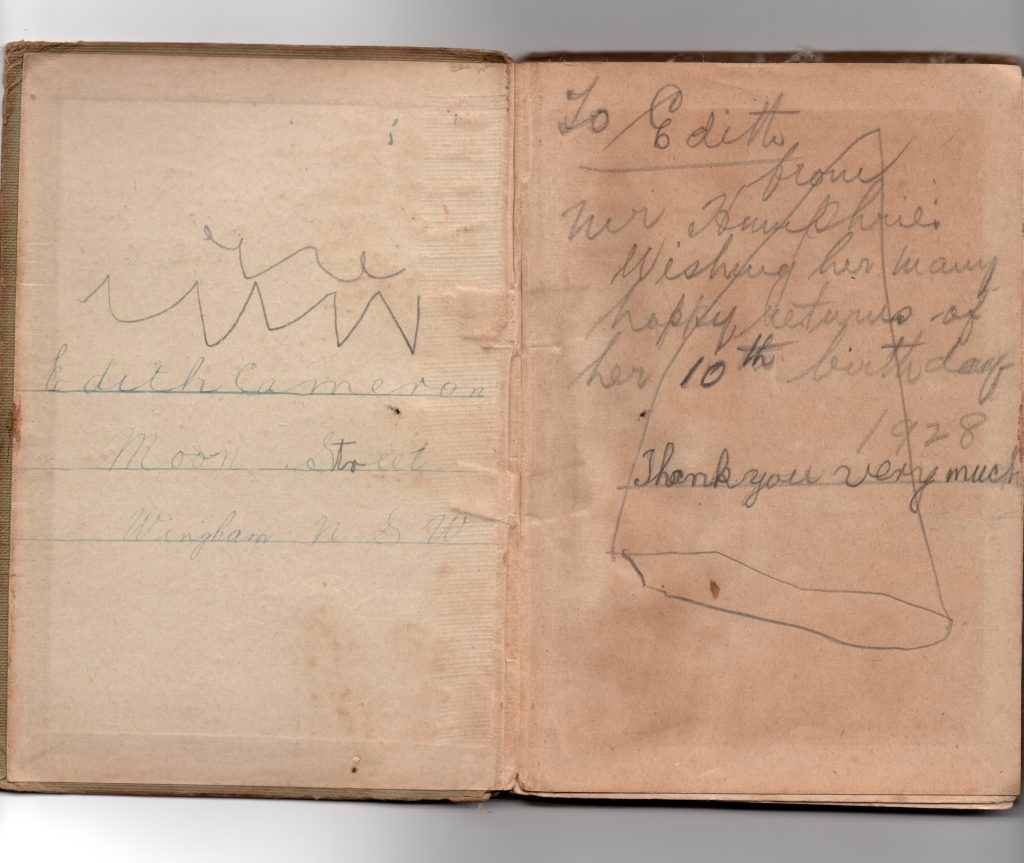 Edith Cameron
Moon Street
Wingham N S W
To Edith
from
Mr Humphries
Wishing her many
happy returns of
her 10th birthday
1928
Thank you very much